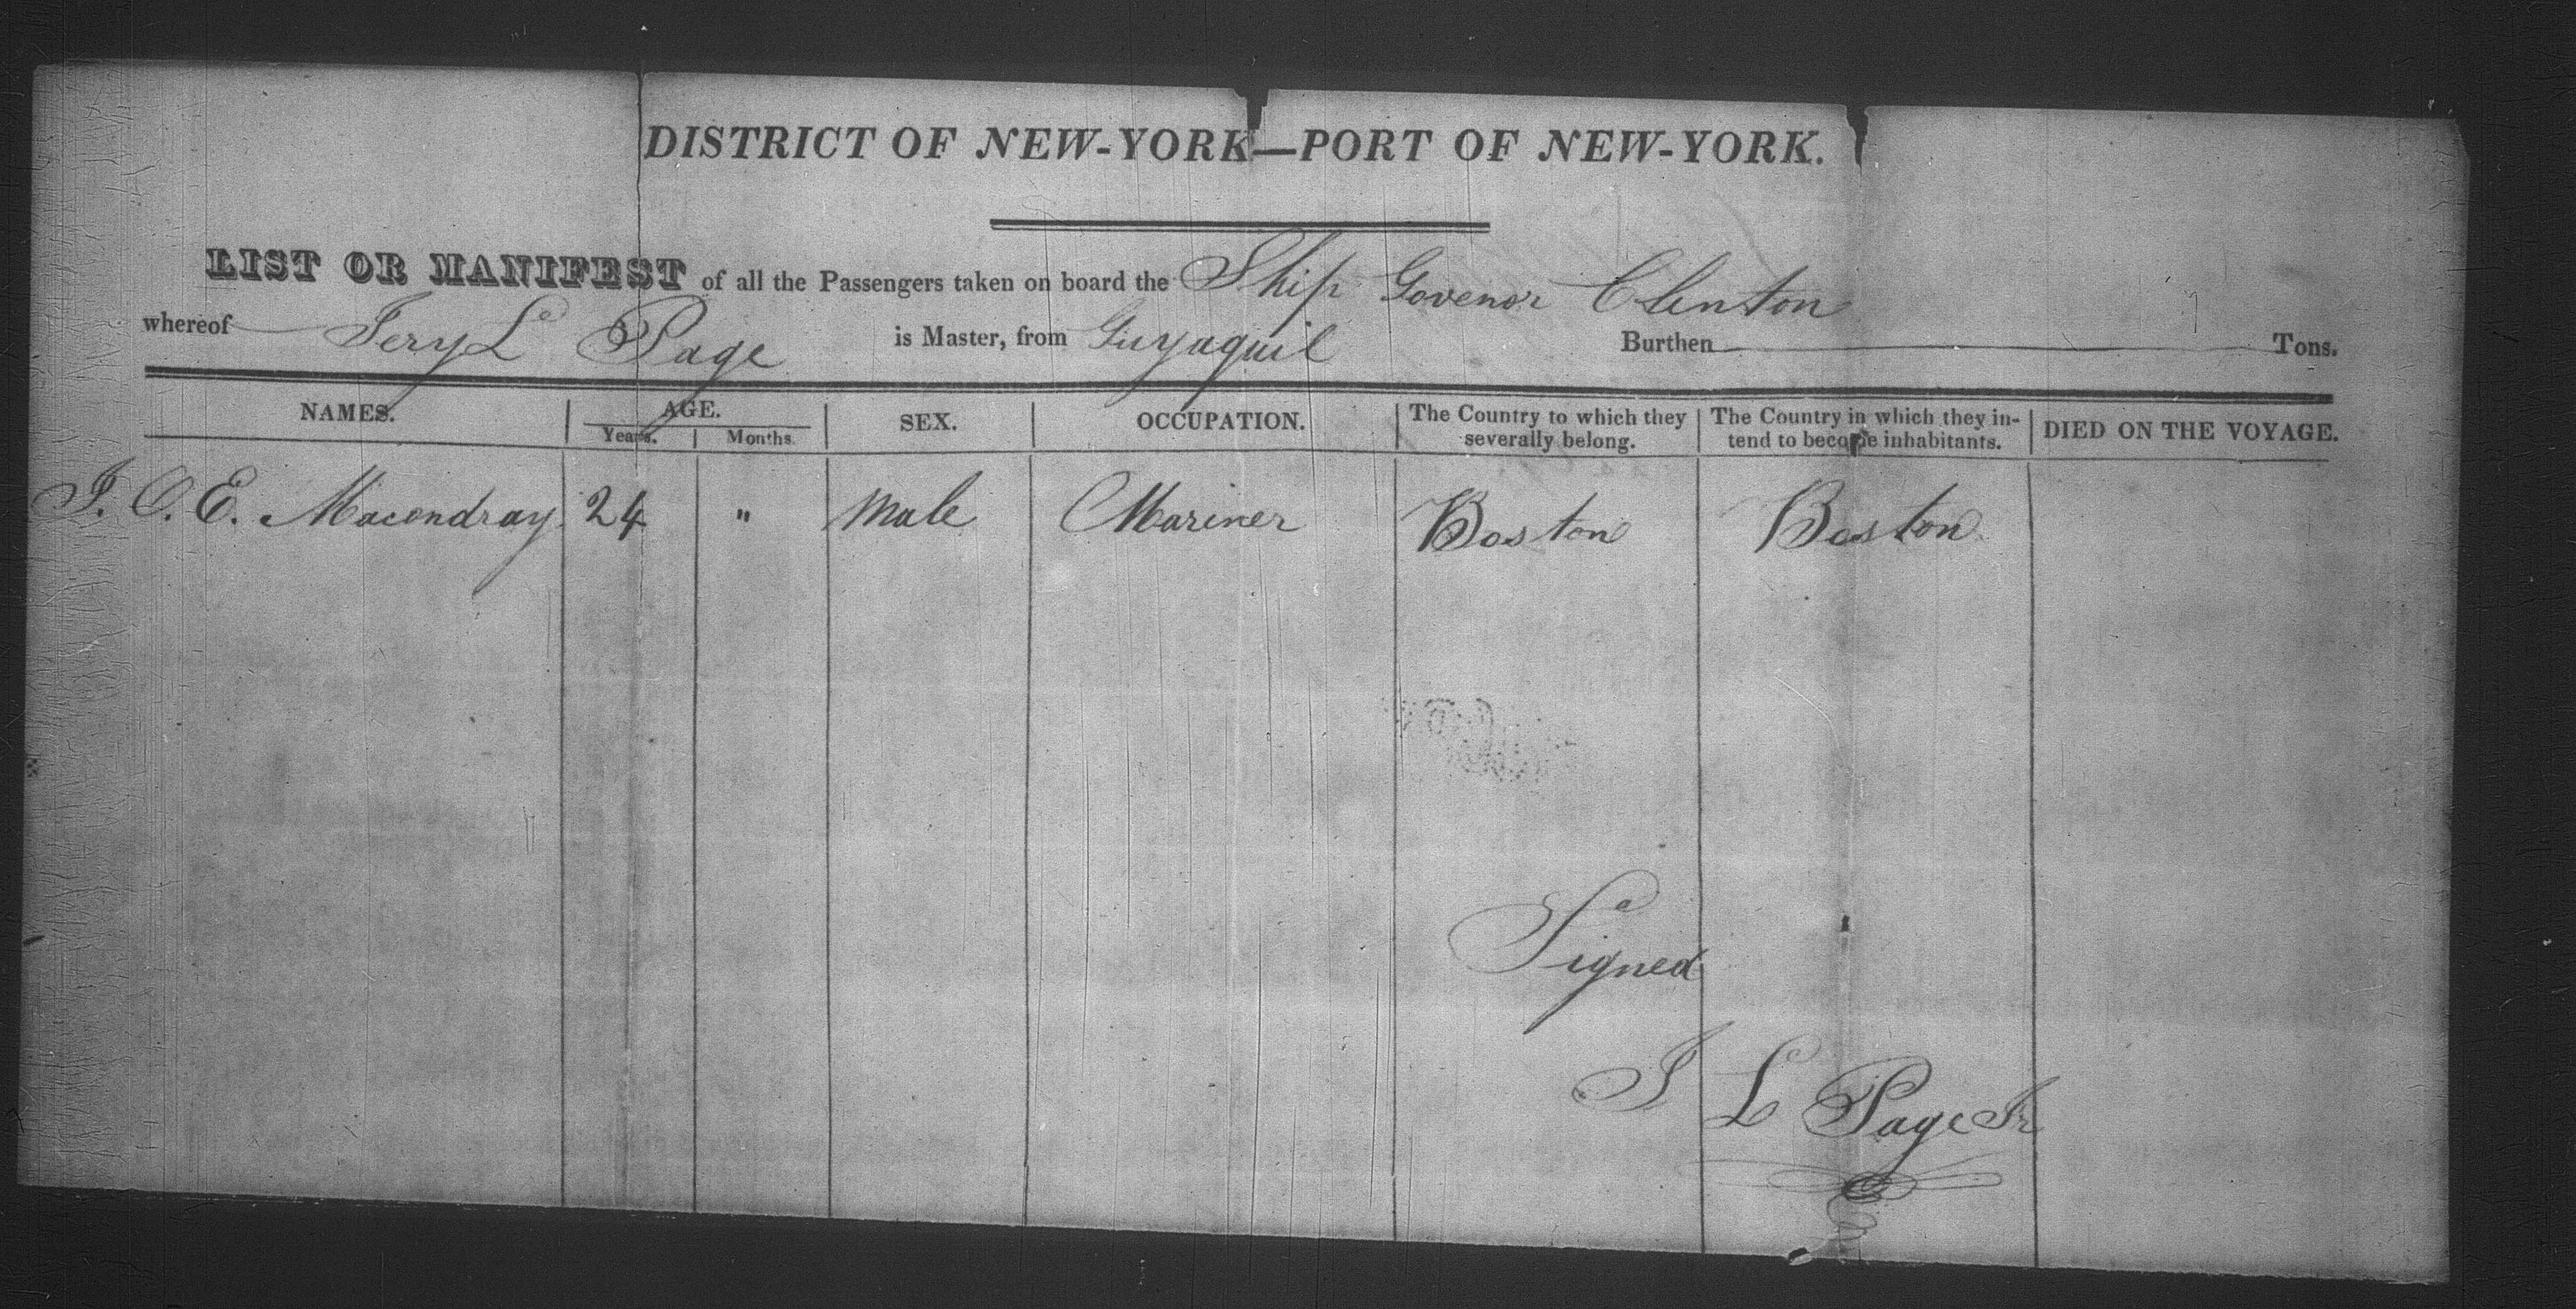 DISTRICT OF NEW-YORK—PORT OF NEW-YORK.
LIST OR MANIFEST of all the Passengers taken on board the Ship Govenor Clenton
whereof Jery L Page is Master, from Guyaquil Burthen Tons.
NAMES. AGE. SEX. OCCUPATION. The Country to which they severally belong. The Country in which they in-tend to become inhabitants. DIED ON THE VOYAGE.
Years. Months.
J. O. E. Macondray 24 " Male Mariner Boston Boston
Signed
J L Page Jr